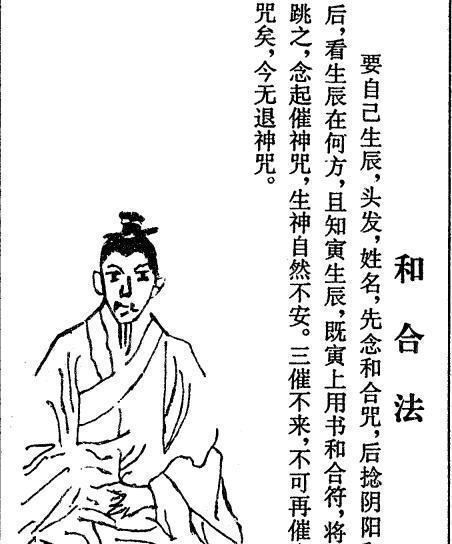 和合法
要自己生辰，头发，姓名，先念和合咒，后捻阴阳
后，看生辰在何方，且知寅生辰，既寅上用书和合符，将
跳之，念起催神咒，生神自然不安。三催不来，不可再催
咒矣，今无退神咒。